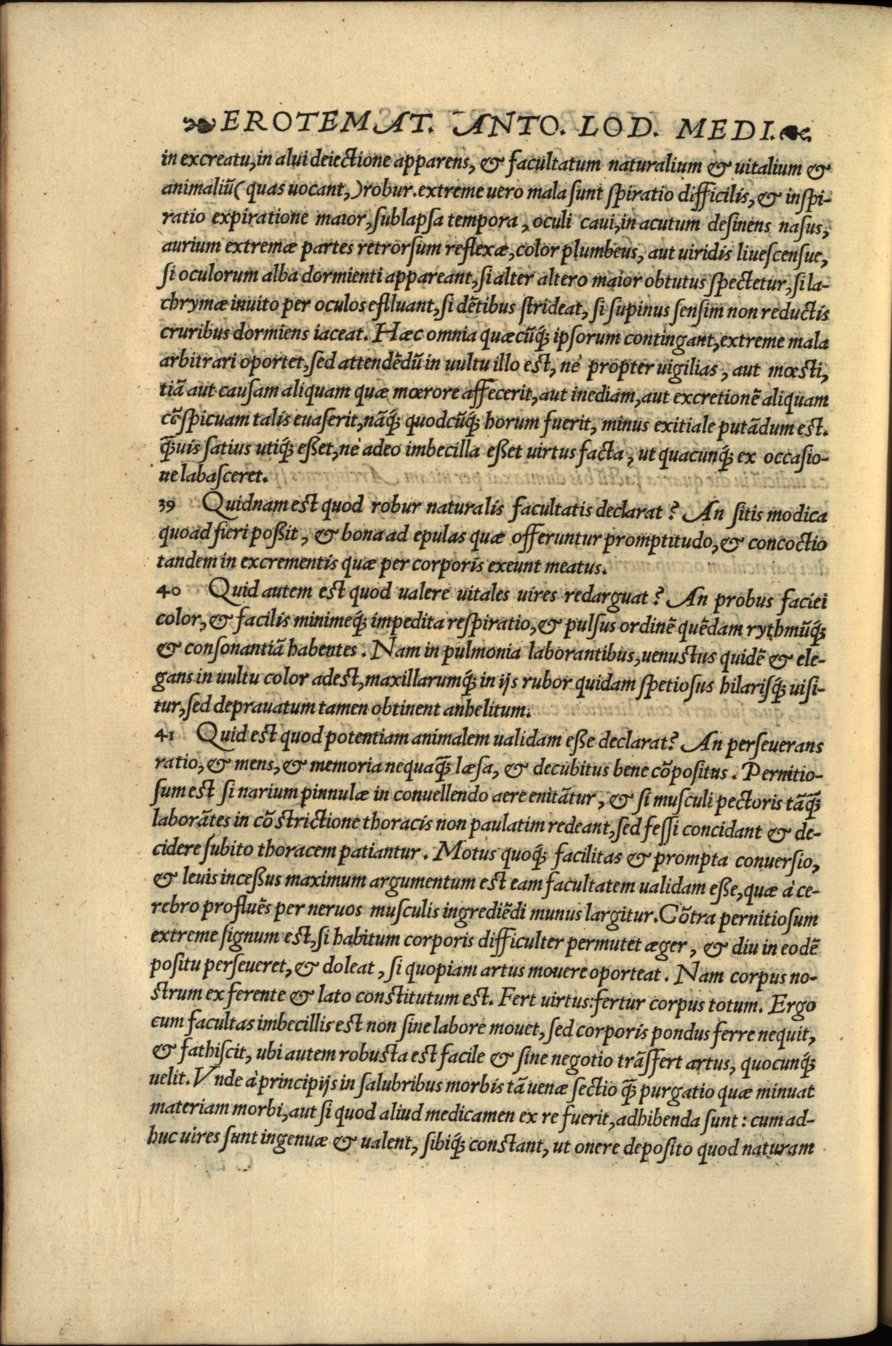 ❧EROTEMAT. ANTO. LOD. MEDI.☙
in excreatu, in alui deiectione apparens, & facultatum naturalium & uitalium &
animaliũ( quas uocant,) robur. extreme uero mala sunt spiratio difficilis, & inspi-
ratio expiratione maior, sublapsa tempora, oculi caui, in acutum desinens nasus,
aurium extremæ partes retrorsum reflexæ, color plumbeus, aut uiridis liuescensue,
si oculorum alba dormienti appareant, si alter altero maior obtutus spectetur, si la-
chrymæ inuito per oculos eflluant, si dẽtibus strideat, si supinus sensim non reductis
cruribus dormiens iaceat. Hæc omnia quæcũq́ ipsorum contingant, extreme mala
arbitrari oportet, sed attendẽdũ in uultu illo est, nè propter uigilias, aut mœsti,
tiã aut causam aliquam quæ mœrore affecerit, aut inediam, aut excretionẽ aliquam
cõspicuam talis euaserit, nãq́ quodcũq́ horum fuerit, minus exitiale putãdum est.
q̃uis satius utiq́ esset, nè adeo imbecilla esset uirtus facta, ut quacunq́ ex occasio-
ne labasceret.
39 Quidnam est quod robur naturalis facultatis declarat? An sitis modica
quoad fieri poßit, & bona ad epulas quæ offeruntur promptitudo, & concoctio
tandem in excrementis quæ per corporis exeunt meatus.
40 Quid autem est quod ualere uitales uires redarguat? An probus faciei
color, & facilis minimeq́ impedita respiratio, & pulsus ordinẽ quẽdam rythmũq́
& consonantiã habentes. Nam in pulmonia laborantibus, uenustus quidẽ & ele-
gans in uultu color adest, maxillarumq́ in ijs rubor quidam spetiosus hilarisq́ uisi-
tur, sed deprauatum tamen obtinent anhelitum.
41 Quid est quod potentiam animalem ualidam eße declarat? An perseuerans
ratio, & mens, & memoria nequaq̃ læsa, & decubitus bene cõpositus. Pernitio-
sum est si narium pinnulæ in conuellendo aere enitãtur, & si musculi pectoris tãq̃
laborãtes in cõstrictione thoracis non paulatim redeant, sed fessi concidant & de-
cidere subito thoracem patiantur. Motus quoq́ facilitas & prompta conuersio,
& leuis inceßus maximum argumentum est eam facultatem ualidam eße, quæ à ce-
rebro profluẽs per neruos musculis ingrediẽdi munus largitur. Cõtra pernitiosum
extreme signum est, si habitum corporis difficulter permutet æger, & diu in eodẽ
positu perseueret, & doleat, si quopiam artus mouere oporteat. Nam corpus no-
strum ex ferente & lato constitutum est. Fert uirtus: fertur corpus totum. Ergo
cum facultas imbecillis est non sine labore mouet, sed corporis pondus ferre nequit,
& fathiscit, ubi autem robusta est facile & sine negotio trãsfert artus, quocunq́
uelit. Vnde à principijs in salubribus morbis tã uenæ sectio q̃ purgatio quæ minuat
materiam morbi, aut si quod aliud medicamen ex re fuerit, adhibenda sunt: cum ad-
huc uires sunt ingenuæ & ualent, sibiq́ constant, ut onere deposito quod naturam